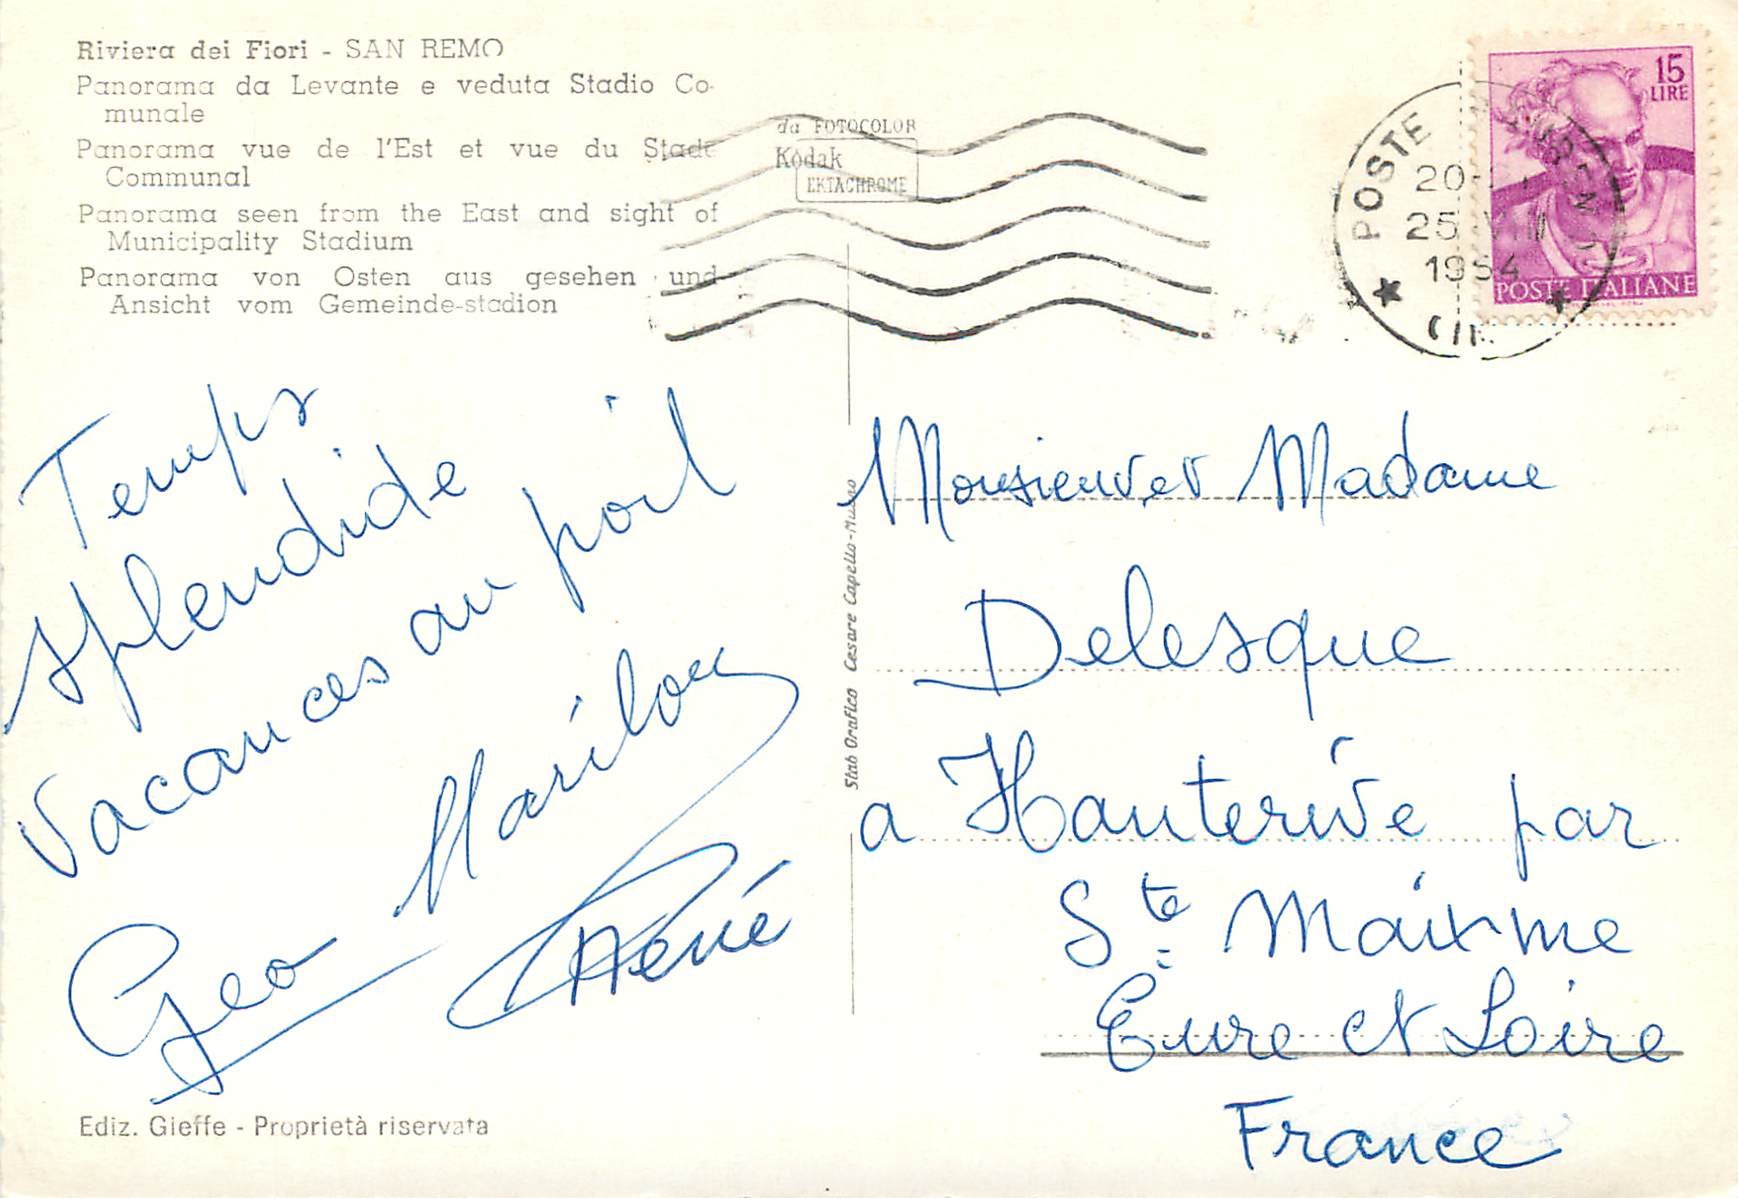 Riviera dei Fiori - SAN REMO
Panorama da Levante e veduta Stadio Co-
munale
Panorama vue de l'Est et vue du Stade
Communal
Panorama seen from the East and sight of
Municipality Stadium
Panorama von Osten aus gesehen und
Ansicht vom Gemeinde-stadion
da FOTOCOLOR
Kodak
EKTACHROME
15
LIRE
POSTE ITALIANE
POSTE
20
25 VIII
1964
Temps
splendide
Vacances au poil
Marilou
Geo
René
Stab Grafico Cesare Capello-Milano
Monsieur et Madame
Delesque
a Hauterive par
Ste Maixme
Eure et Loire
France
Ediz. Gieffe - Proprietà riservata